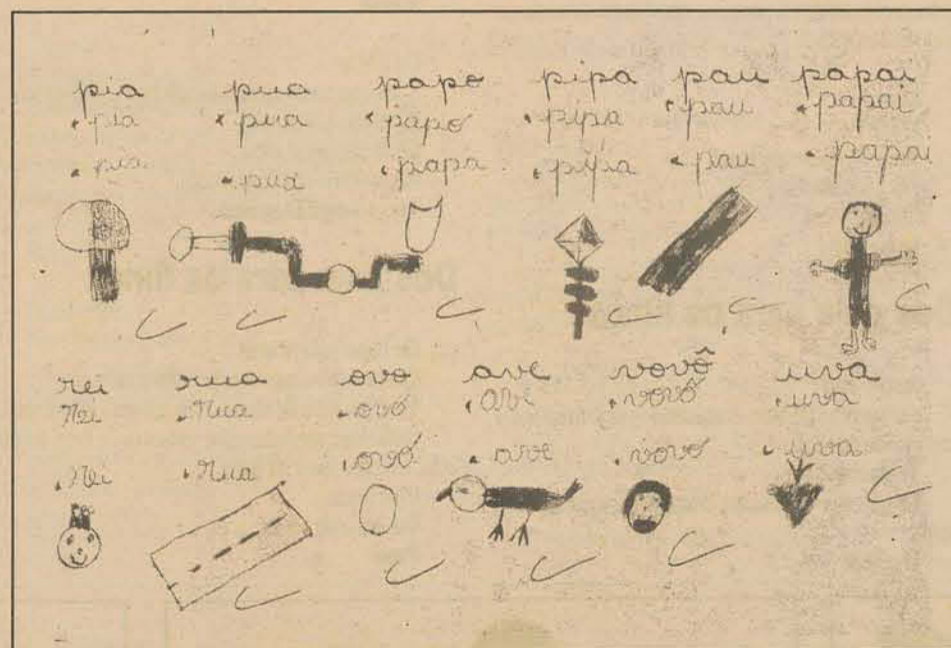 pia pua papo pipa pau papai
pia pua papo pipa pau papai
pia pua papa pipa pau papai
rei rua ovo ave vovô uva
rei rua ovó ave vovó uva
rei rua ovó ave vovó uva